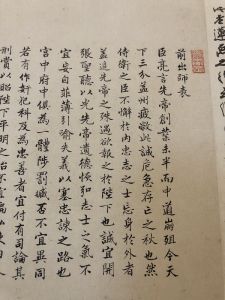 前出師表
臣亮言先帝創業未半而中道崩殂今天
下三分益州疲敝此誠危急存亡之秋也然
侍衛之臣不懈於內忠志之士忘身於外者
蓋追先帝之殊遇欲報之於陛下也誠宜開
張聖聽以光先帝遺德恢弘志士之氣不
宜妄自菲薄引喻失義以塞忠諫之路也
宮中府中俱為一體陟罰臧否不宜異同
若有作奸犯科及為忠善者宜付有司論其
刑賞以昭陛下平明之治不宜偏